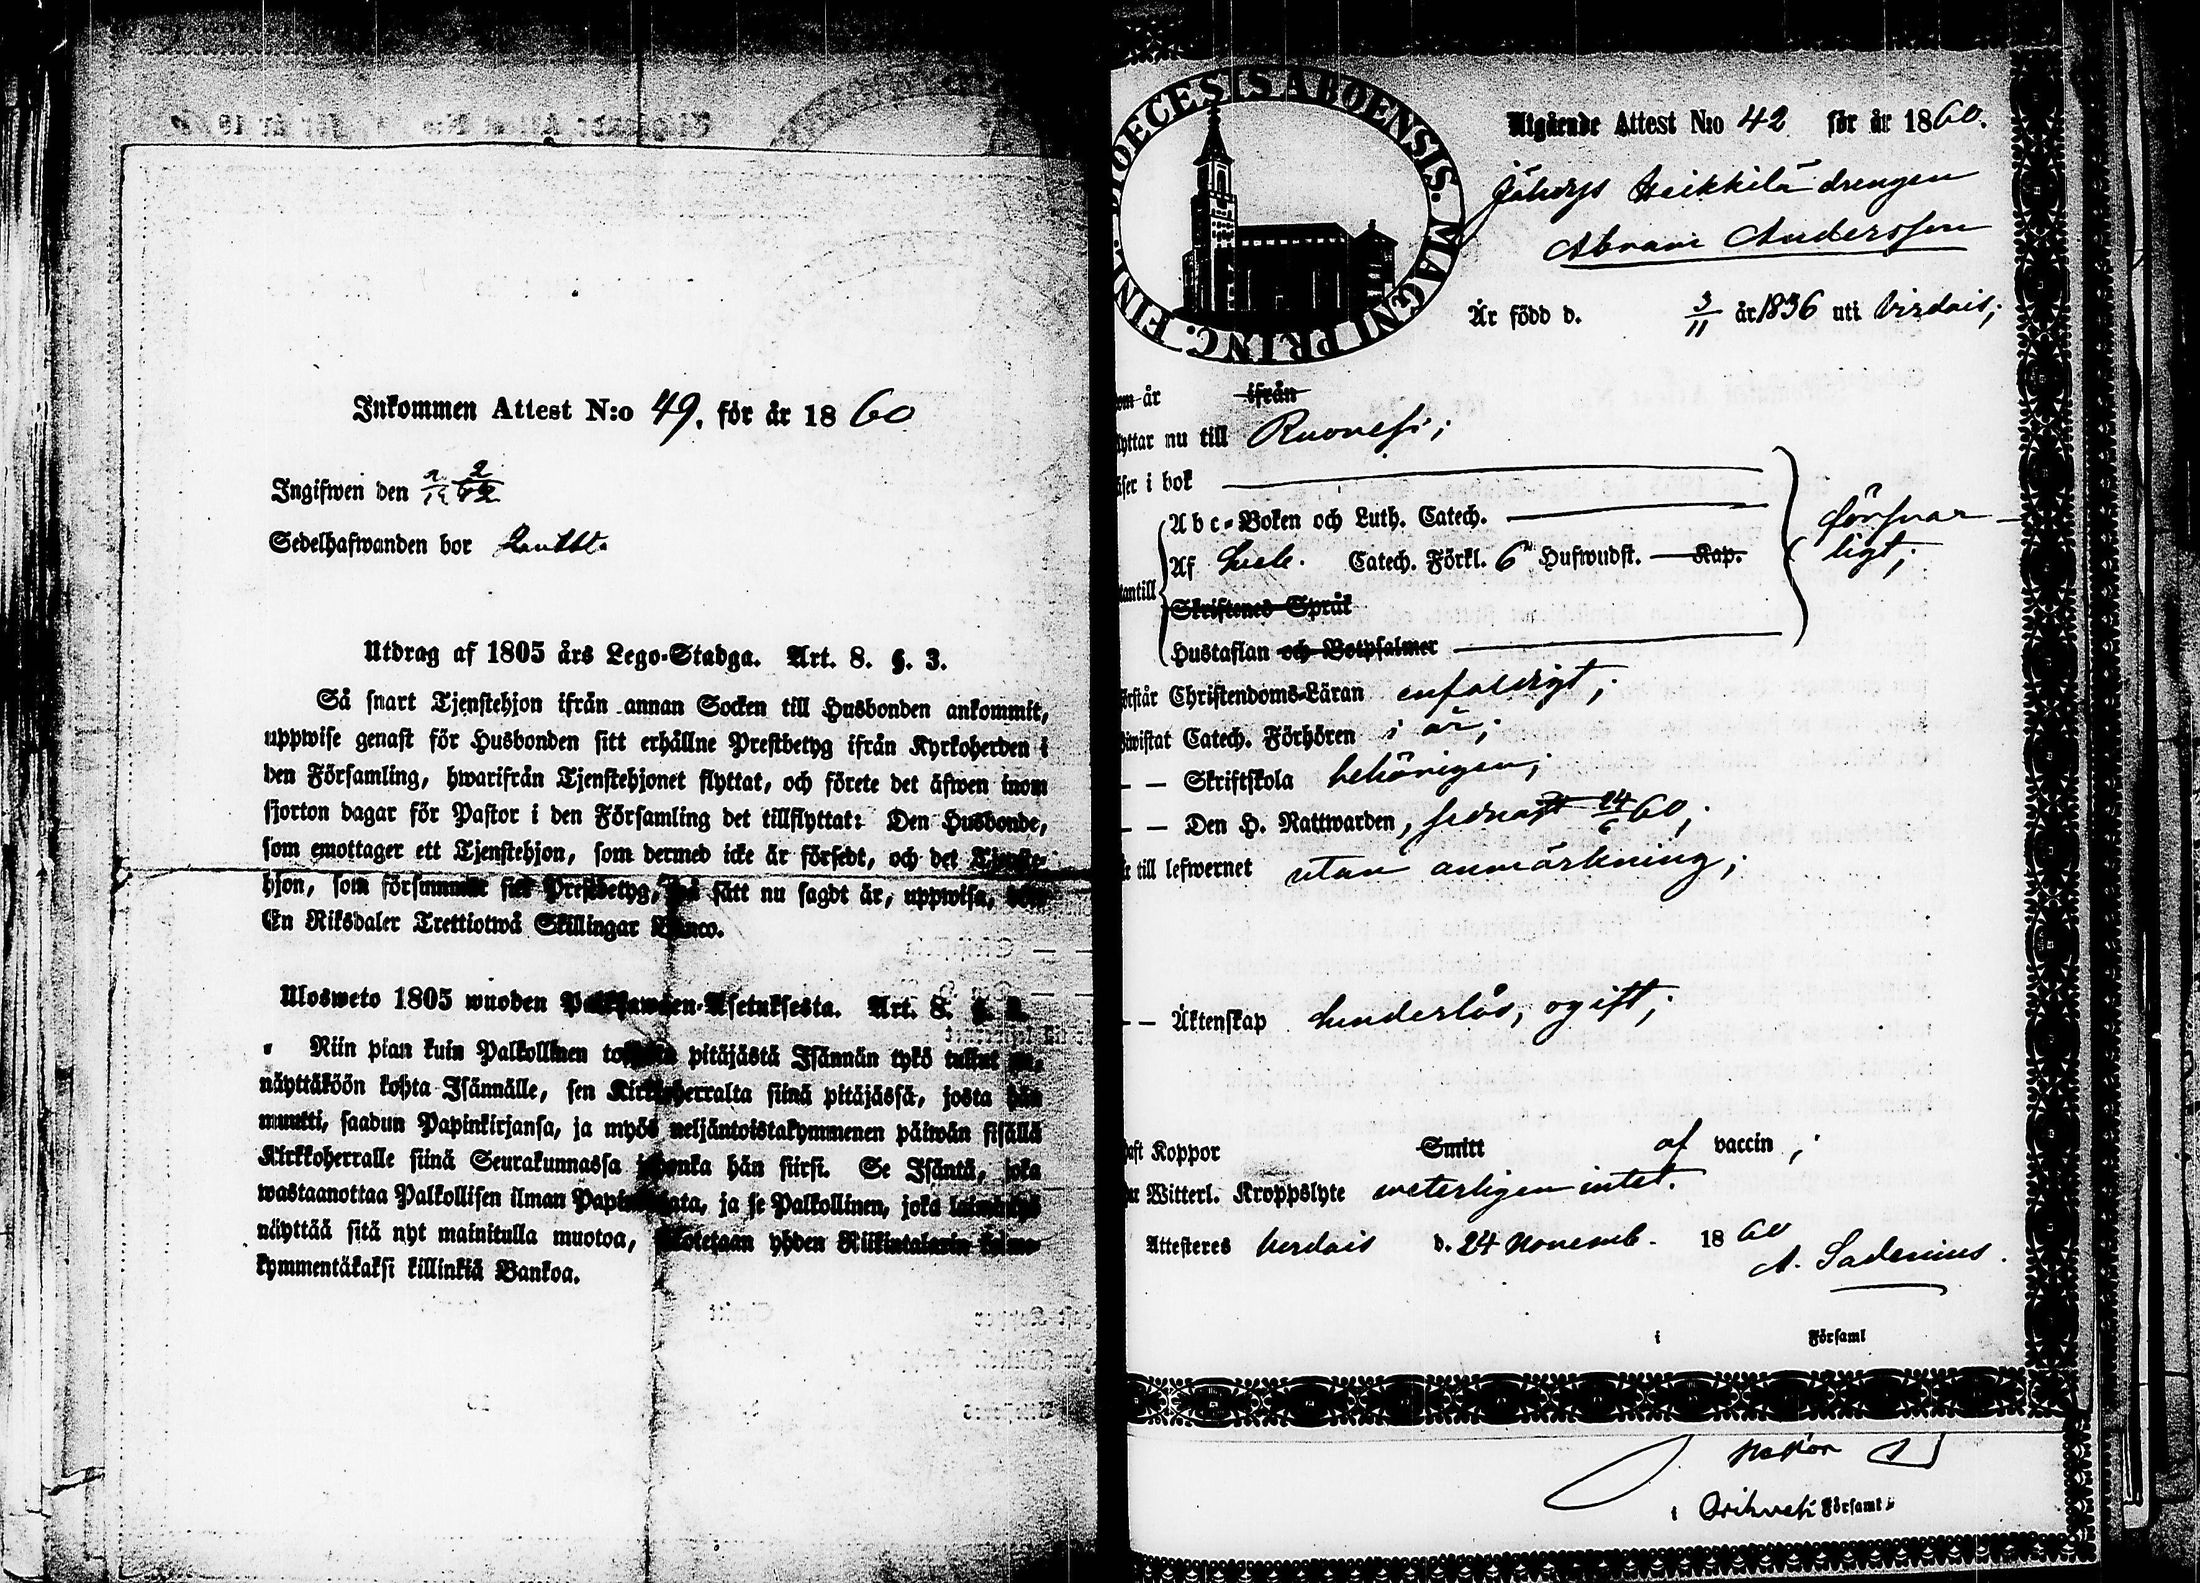 Inkommen Attest N:o 49. för år 1860
Ingifwen den
Sedelhafwanden bor
Utdrag af 1805 års Lego-Stadga. Art. 8. §. 3.
Så snart Tjenstehjon ifrån annan Socken till Husbonden ankommit,
uppwise genast för Husbonden sitt erhållne Prestbetyg ifrån Kyrkoherden i
den Församling, hwarifrån Tjenstehjonet flyttat, och förete det äfwen inom
fjorton dagar för Pastor i den Församling det tillflyttat: Den Husbonde,
som emottager ett Tjenstehjon, som dermed icke är försedt, och det Tjenste-
hjon, som försummar sitt Prestbetyg, på sätt nu sagdt är, uppwisa,
En Riksdaler Trettiotwå Skillingar Banco.
Ulosweto 1805 wuoden Palkkawäen-Asetuksesta. Art. 8. §. 3.
Niin pian kuin Palkollinen toisesta pitäjästä Isännän tykö tullut on,
näyttäköön kohta Isännälle, sen Kirkkoherralta siinä pitäjässä, josta hän
muutti, saadun Papinkirjansa, ja myös neljäntoistakymmenen päiwän sisällä
Kirkkoherralle siinä Seurakunnassa johonka hän siirsi. Se Isäntä, joka
wastaanottaa Palkollisen ilman Papinkirjata, ja se Palkollinen, joka laiminlyö
näyttää sitä nyt mainitulla muotoa, wedotetaan yhden Riikintalarin kolme-
kymmentäkaksi killinkiä Bankoa.
DIOECESIS ABOENSIS. MAGNI PRINC. FINL.
Utgående Attest N:o 42 för år 1860.
Jähdys Heikkilä drengen
Abram Andersson
Är född d. 3/11 år 1836 uti Virdois;
om år ifrån
lyttar nu till Ruovesi;
äser i bok
Abc-Boken och Luth. Catech.
försvar-
Af Catech. Förkl. 6 Hufwudst. Kap.
ligt;
antill
Skriftenes Språk
Hustaflan och Botpsalmer
örstår Christendoms-Läran enfaldigt;
iwistat Catech. Förhören i år;
— — Skriftskola behörigen;
— — Den H. Nattwarden, sednast 24/6 60;
till lefwernet utan anmärkning;
— — Äktenskap hinderlös, ogift;
aft Koppor Smitt af vaccin;
Witterl. Kroppslyte weterligen intet.
Attesteres Virdois d. 24 Novemb. 1860
A. Sadenius.
i Församl
i Orihvesi Församl.